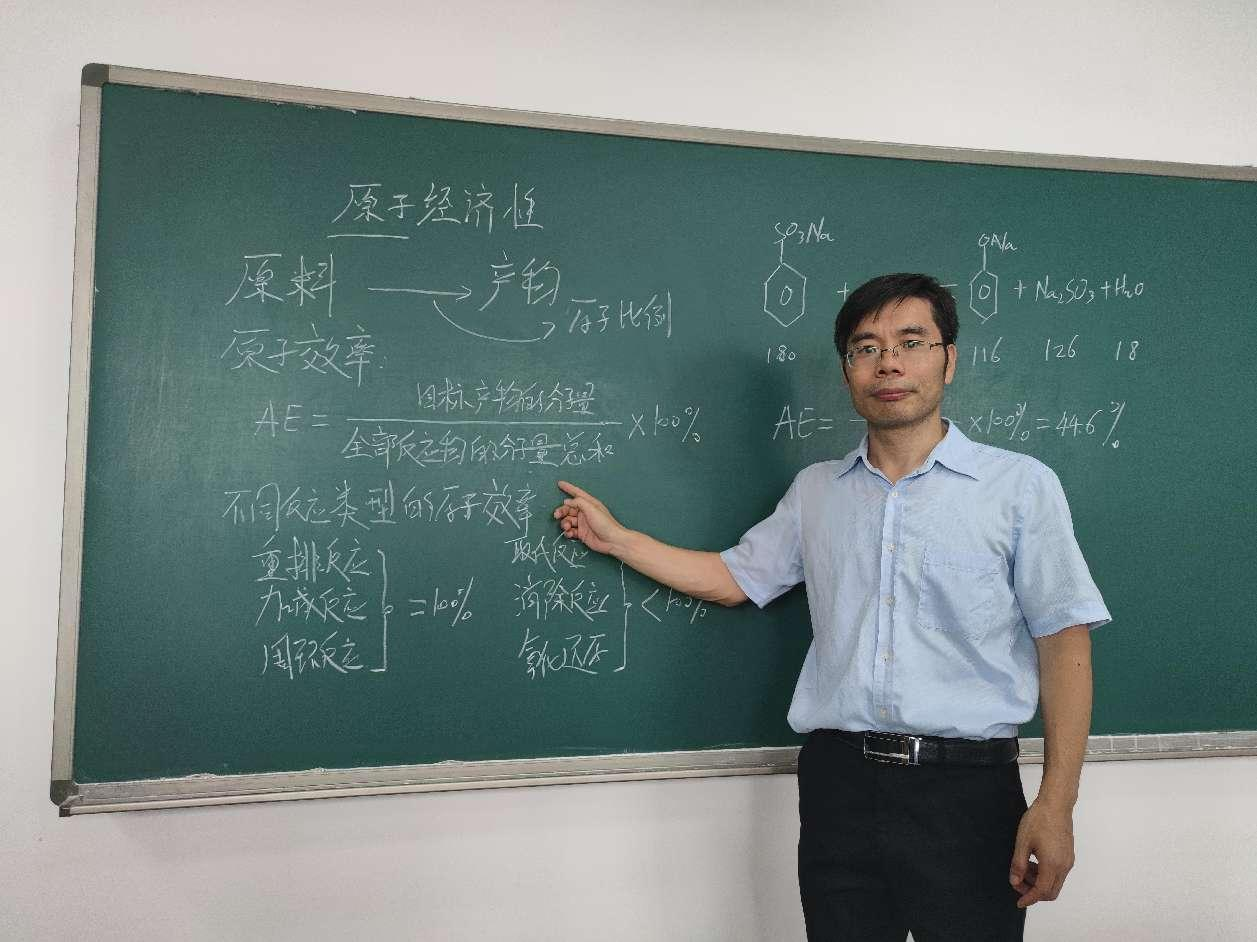 原子经济性
原料 → 产物
原子比例
原子效率:
AE = 目标产物的分子量 × 100%
全部反应物的分子量总和
不同反应类型的原子效率
重排反应
加成反应
周环反应
= 100%
取代反应
消除反应
氧化还原
< 100%
SO₃Na
+
ONa
+ Na₂SO₃ + H₂O
180 116 126 18
AE = × 100% = 44.6%